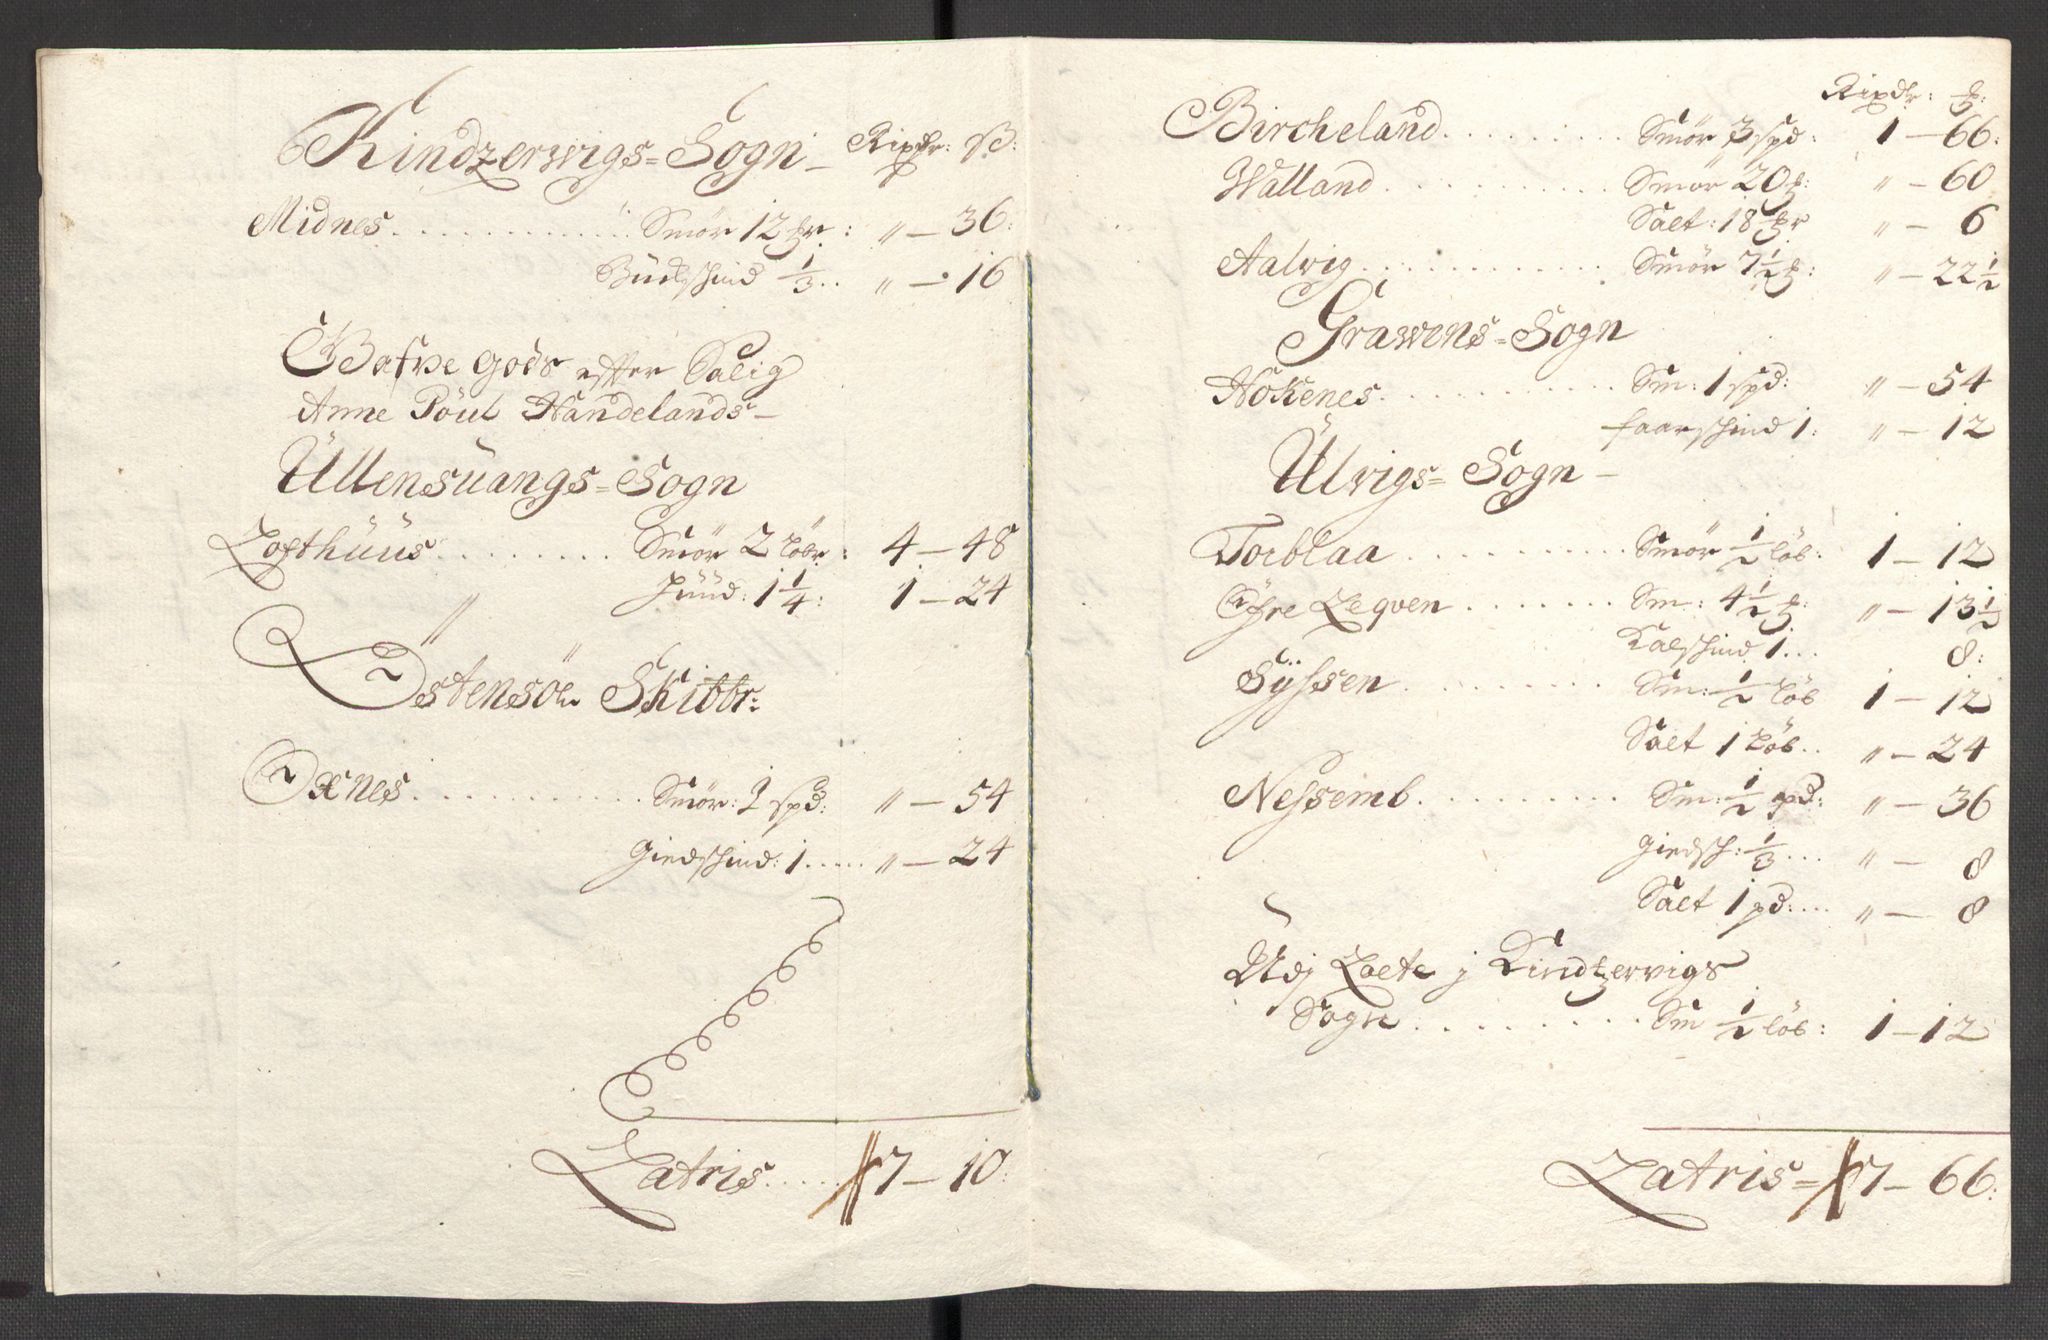 Kindzerwigs = Sogn – Rixdr: ß:
Midnes . . . . . . . . . Smör 12 [pund]r : " — 36:
Budschind 1/3 . . " — 16
Bafve gods effter Salig
Anne Pöul Handelands –
Üllensuangs = Sogn
Lofthüüs . . . . . . . Smör 2 Löbr : 4 — 48
" Huud : 1 1/4 : 1 — 24
Östensöe Skibbr:
Oxnes . . . . . . . . . Smör : 1 spd: " — 54
giedschind : 1 . . . . . " — 24
Latris . . . . . 7 — 10:
Rixdr : ß:
Bircheland . . . . . . . . . Smör 3 spd : 1 — 66:
Walland . . . . . . . . . . Smör 20 : " — 60
Salt : 18 " — 6
Aalvig . . . . . . . . . . . Smör 7 1/2 : " — 22 1/2
Gravens = Sogn
Hokenes . . . . . . . . . Sm : 1 spd: " — 54
faarschind 1 : " — 12
Ülvigs = Sogn –
Torblaa . . . . . . . . . . Smör 1/2 löb : 1 — 12
Öfre Leqven . . . . . . . Sm : 4 1/2 : " — 13 1/2
Kalschind 1 . . . 8:
Syssen . . . . . . . . . Sm : 1/2 löb 1 — 12
Salt 1 Löb . . " — 24
Nessemb . . . . . . . . . Sm : 1/2 pd: " — 36
giedsch : 1/3 . . . " — 8
Salt 1 pd: . . . " — 8
Udj Laete j Kindzervigs
Sogn . . . . . . . . . . Sm 1/2 löb : 1 — 12
Latris = 7 — 66: